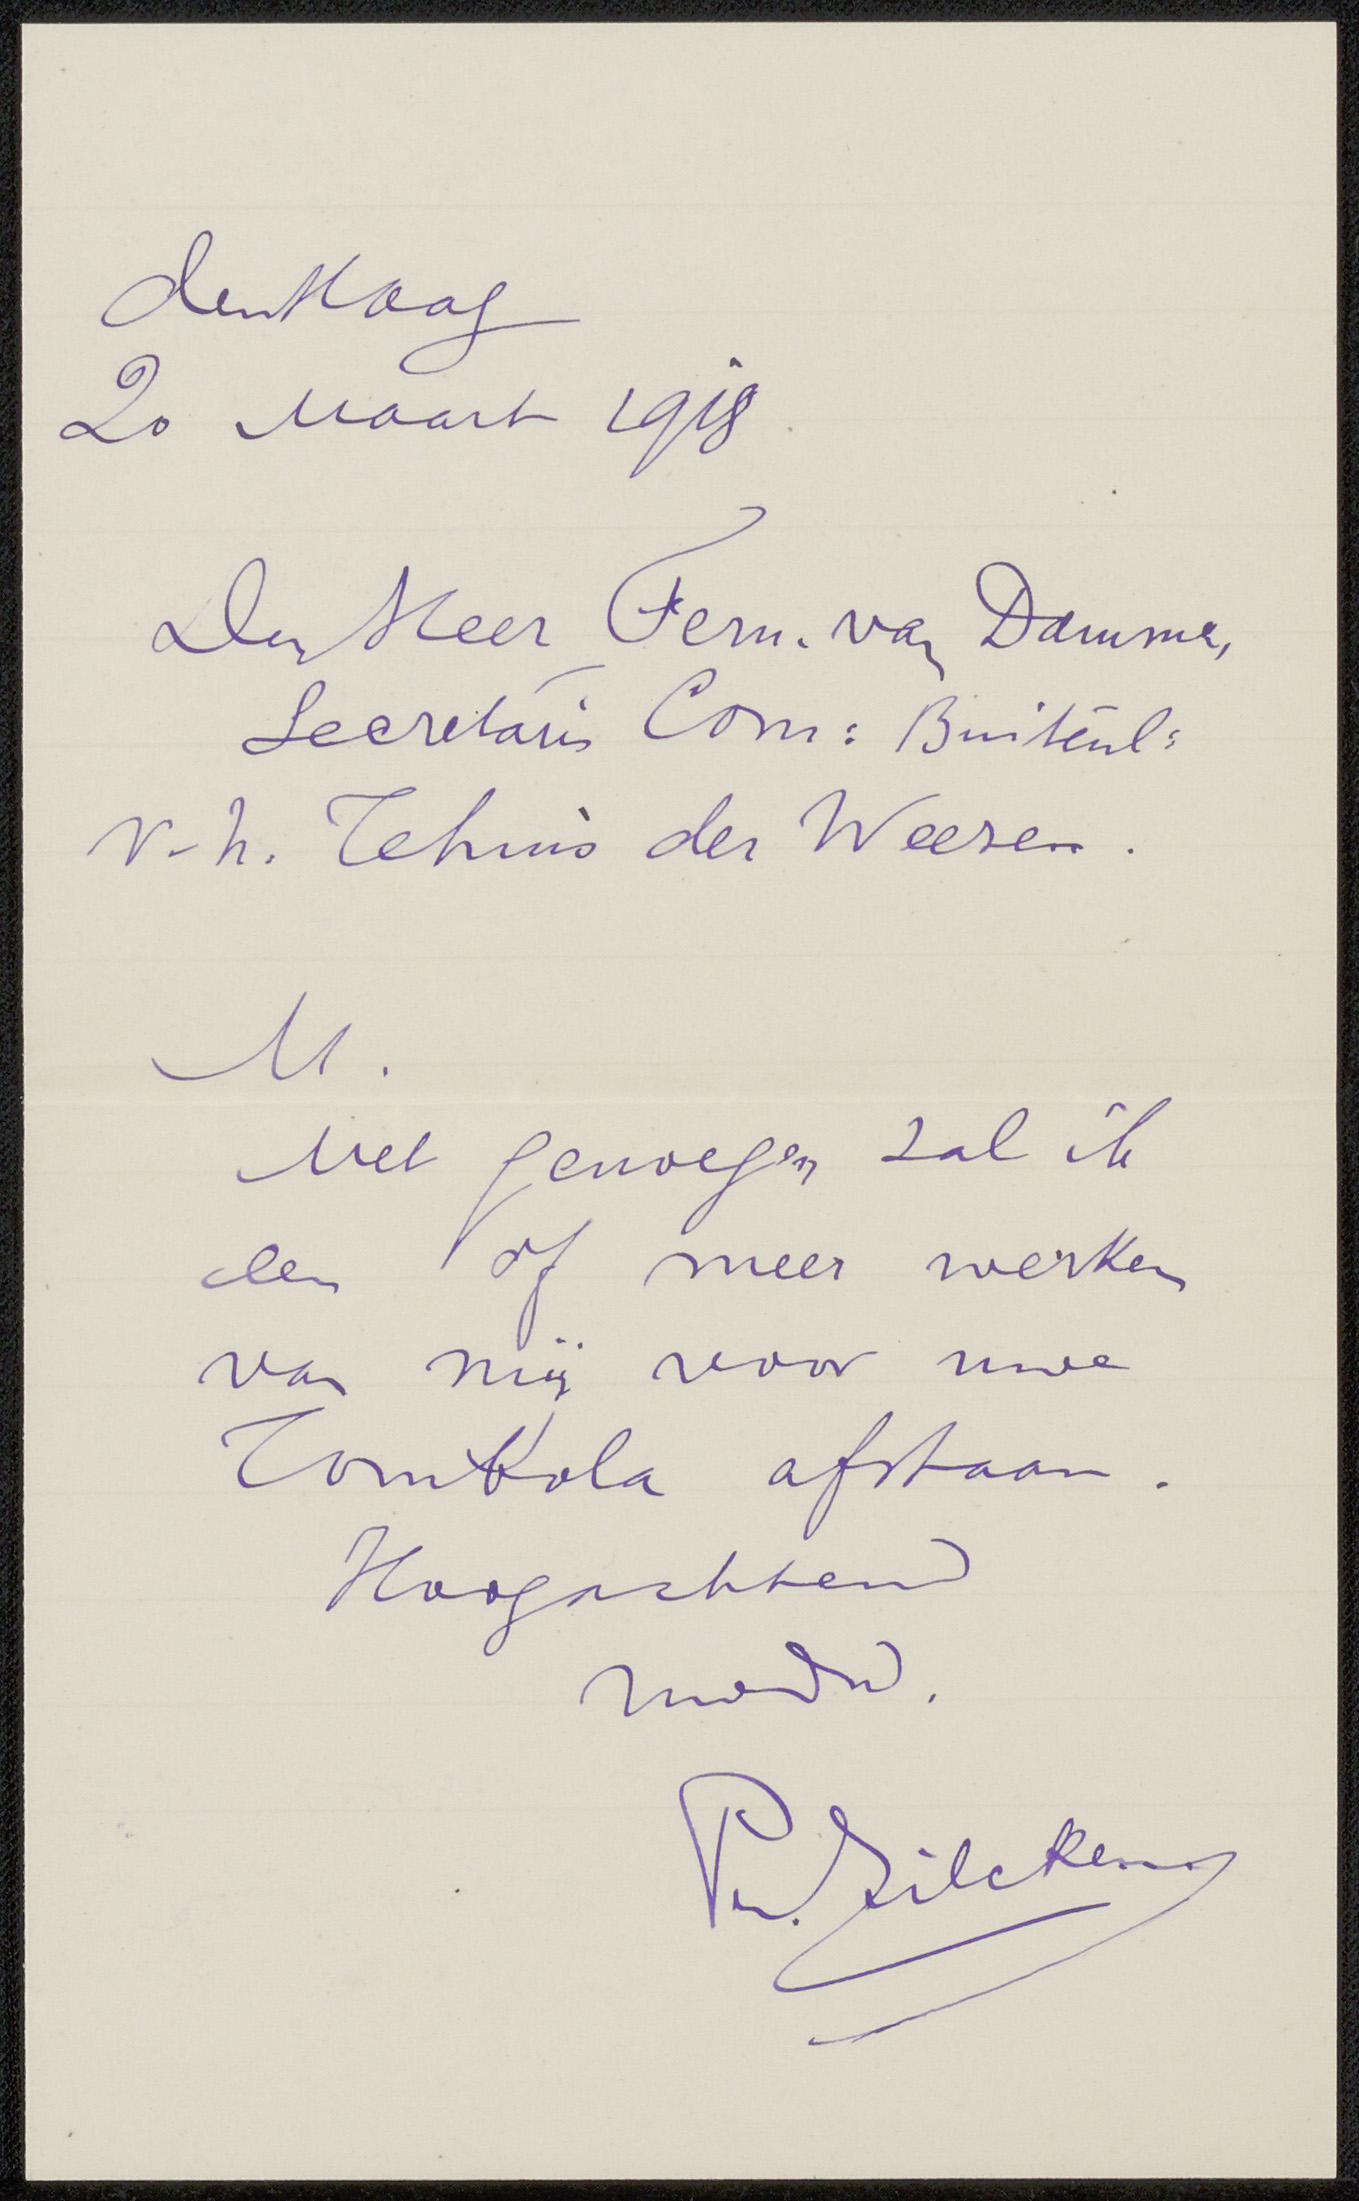 den Haag
20 Maart 1918.
Den Heer Fern. van Damme,
Secretaris Com: Buitenl:
v. h. Tehuis der Weezen.
M.
Met genoegen zal ik
een of meer werken
van mij voor uwe
Tombola afstaan.
Hoogachtend
uwdw.
Ph. Zilcken